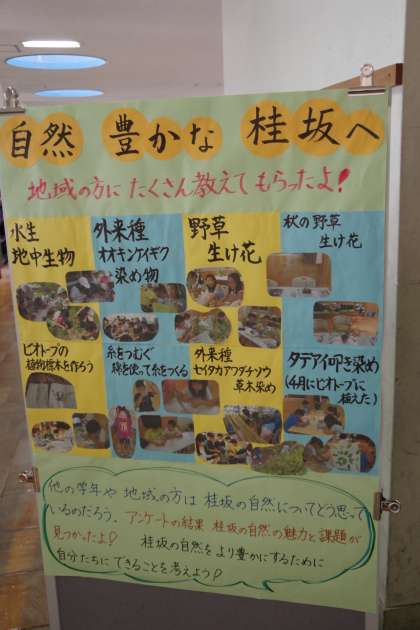 自然 豊かな 桂坂へ
地域の方に たくさん教えて もらったよ!
水生
地中生物
外来種
オオキンケイギク
染め物
野草
生け花
秋の野草
生け花
ビオトープの
植物標本を作ろう
糸をつむぐ
綿を使って糸をつくる
外来種
セイタカアワダチソウ
草木染め
タデアイ叩き染め
(4月にビオトープに
植えた)
他の学年や 地域の方は 桂坂の自然についてどう思って
いるのだろう。アンケートの結果 桂坂の自然の魅力と課題が
見つかったよ!
桂坂の自然をより豊かにするために
自分たちに できることを考えよう!